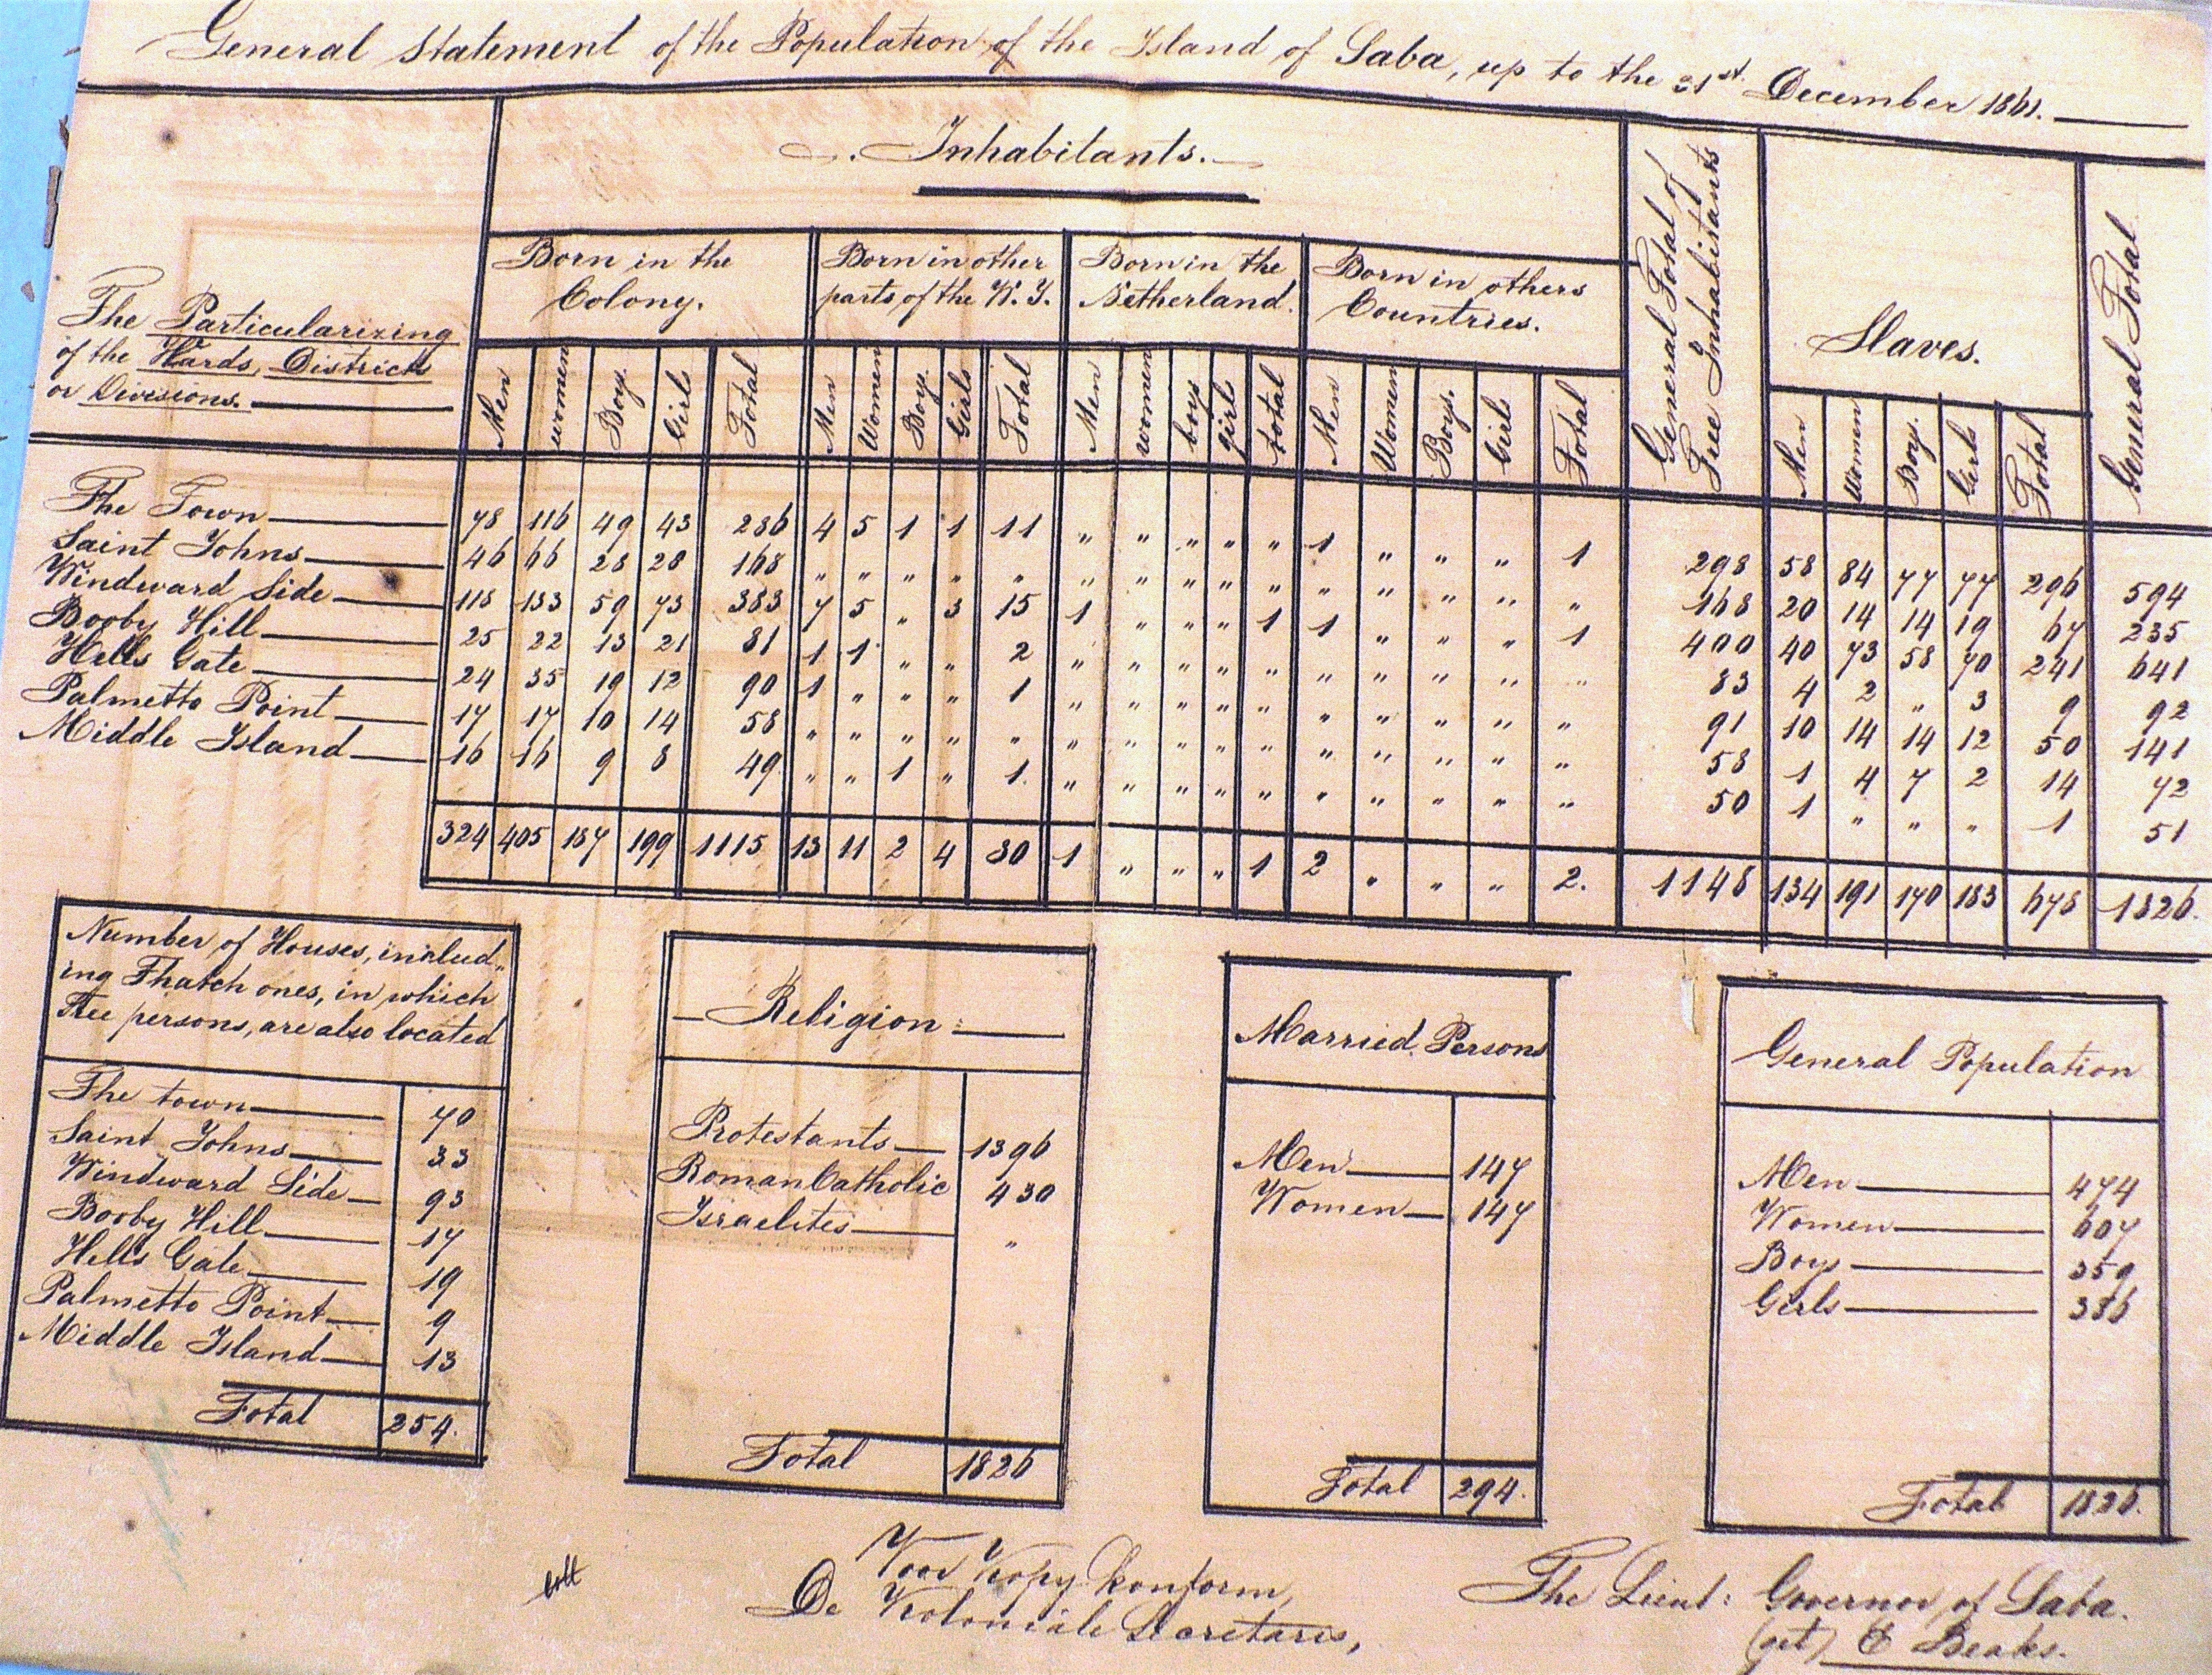 General Statement of the Population of the Island of Saba, up to the 31st December 1861.
Inhabitants.
General Total of Free Inhabitants
Slaves.
General Total
The Particularizing
of the Wards, Districts
or Divisions.
Born in the
Colony.
Born in other
parts of the W. I.
Born in the
Netherland.
Born in others
Countries.
Men women Boys. Girls Total Men Women Boys. Girls Total Men women boys girls total Men Women Boys. Girls Total Men Women Boys. Girls Total
The Town 78 116 49 43 286 4 5 1 1 11 " " " " " 1 " " " 1 298 58 84 77 77 296 594
Saint Johns 46 66 28 28 168 " " " " " " " " " " " " " " " 168 20 14 14 19 67 235
Windward Side 118 133 59 73 383 7 5 " 3 15 1 " " " 1 1 " " " 1 400 40 73 58 70 241 641
Booby Hill 25 22 13 21 81 1 1 " " 2 " " " " " " " " " " 83 4 2 " 3 9 92
Hells Gate 24 35 19 12 90 1 " " " 1 " " " " " " " " " " 91 10 14 14 12 50 141
Palmetto Point 17 17 10 14 58 " " " " " " " " " " " " " " " 58 1 4 7 2 14 72
Middle Island 16 16 9 8 49 " " 1 " 1 " " " " " " " " " " 50 1 " " " 1 51
324 405 187 199 1115 13 11 2 4 30 1 " " " 1 2 " " " 2. 1148 134 191 170 183 678 1826.
Number of Houses, includ„
ing Thatch ones, in which
Free persons, are also located
The town 70
Saint Johns 33
Windward Side 93
Booby Hill 17
Hells Gate 19
Palmetto Point 9
Middle Island 13
Total 254.
Religion:
Protestants 1396
Roman Catholic 430
Israelites "
Total 1826
Married Persons
Men 147
Women 147
Total 294.
General Population
Men 474
Women 607
Boys 359
Girls 386
Total 1826.
Voor Kopy Konform,
De Koloniale Secretaris,
The Lieut: Governor of Saba.
(get) E Beaks.